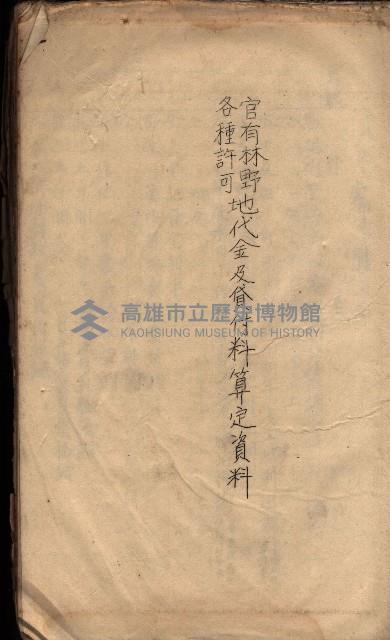 官有林野
各種許可
地代金及貸付料算定資料
高雄市立歷史博物館
KAOHSIUNG MUSEUM OF HISTORY